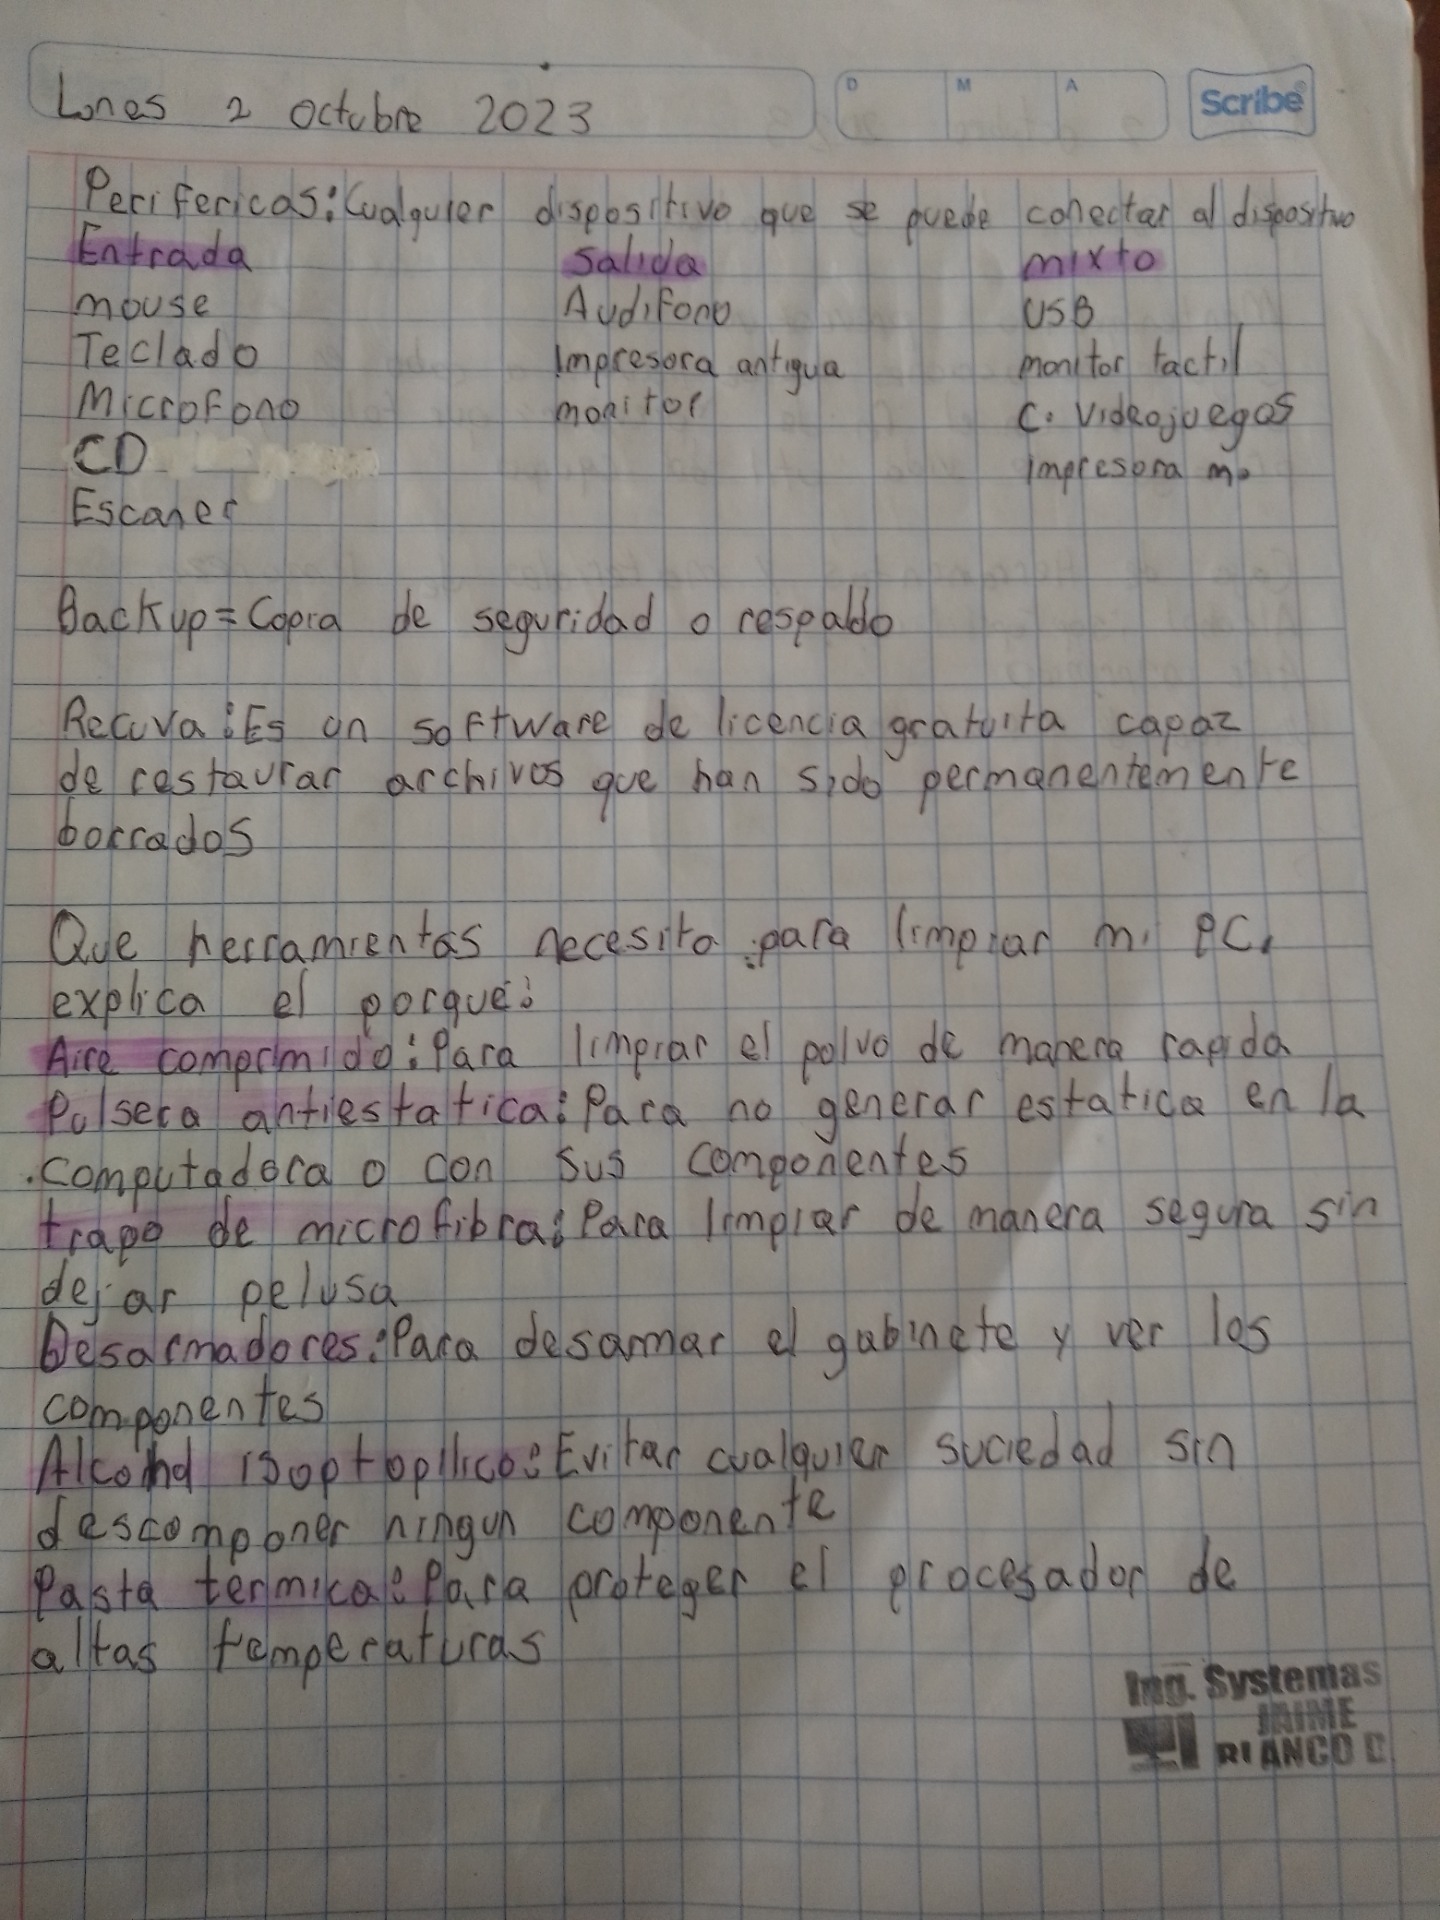 Lunes 2 Octubre 2023
D M A
Scribe
Perifericas: Cualquier dispositivo que se puede conectar al dispositivo
Entrada Salida mixto
mouse Audifono USB
Teclado Impresora antigua monitor tactil
Microfono monitor C. Videojuegos
CD impresora m.
Escaner
Backup = Copia de seguridad o respaldo
Recuva: Es un software de licencia gratuita capaz
de restaurar archivos que han sido permanentemente
borrados
Que herramientas necesito para limpiar mi PC,
explica el porque:
Aire comprimido: Para limpiar el polvo de manera rapida
Pulsera antiestatica: Para no generar estatica en la
computadora o con sus componentes
trapo de microfibra: Para limpiar de manera segura sin
dejar pelusa
Desarmadores: Para desarmar el gabinete y ver los
componentes
isoptopilico: Evitar cualquier suciedad sin
descomponer ningun componente
Pasta termica: Para proteger el procesador de
altas temperaturas
Ing. Systemas
JAIME
BLANCO C